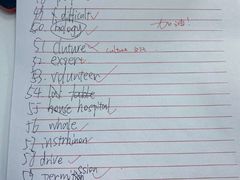 49 difficult
50. biology
51 cluture culture
52. expert
53. volunteer
54 table
55 house hospital
56 whole
57 instrumen
58 drive
59 permission